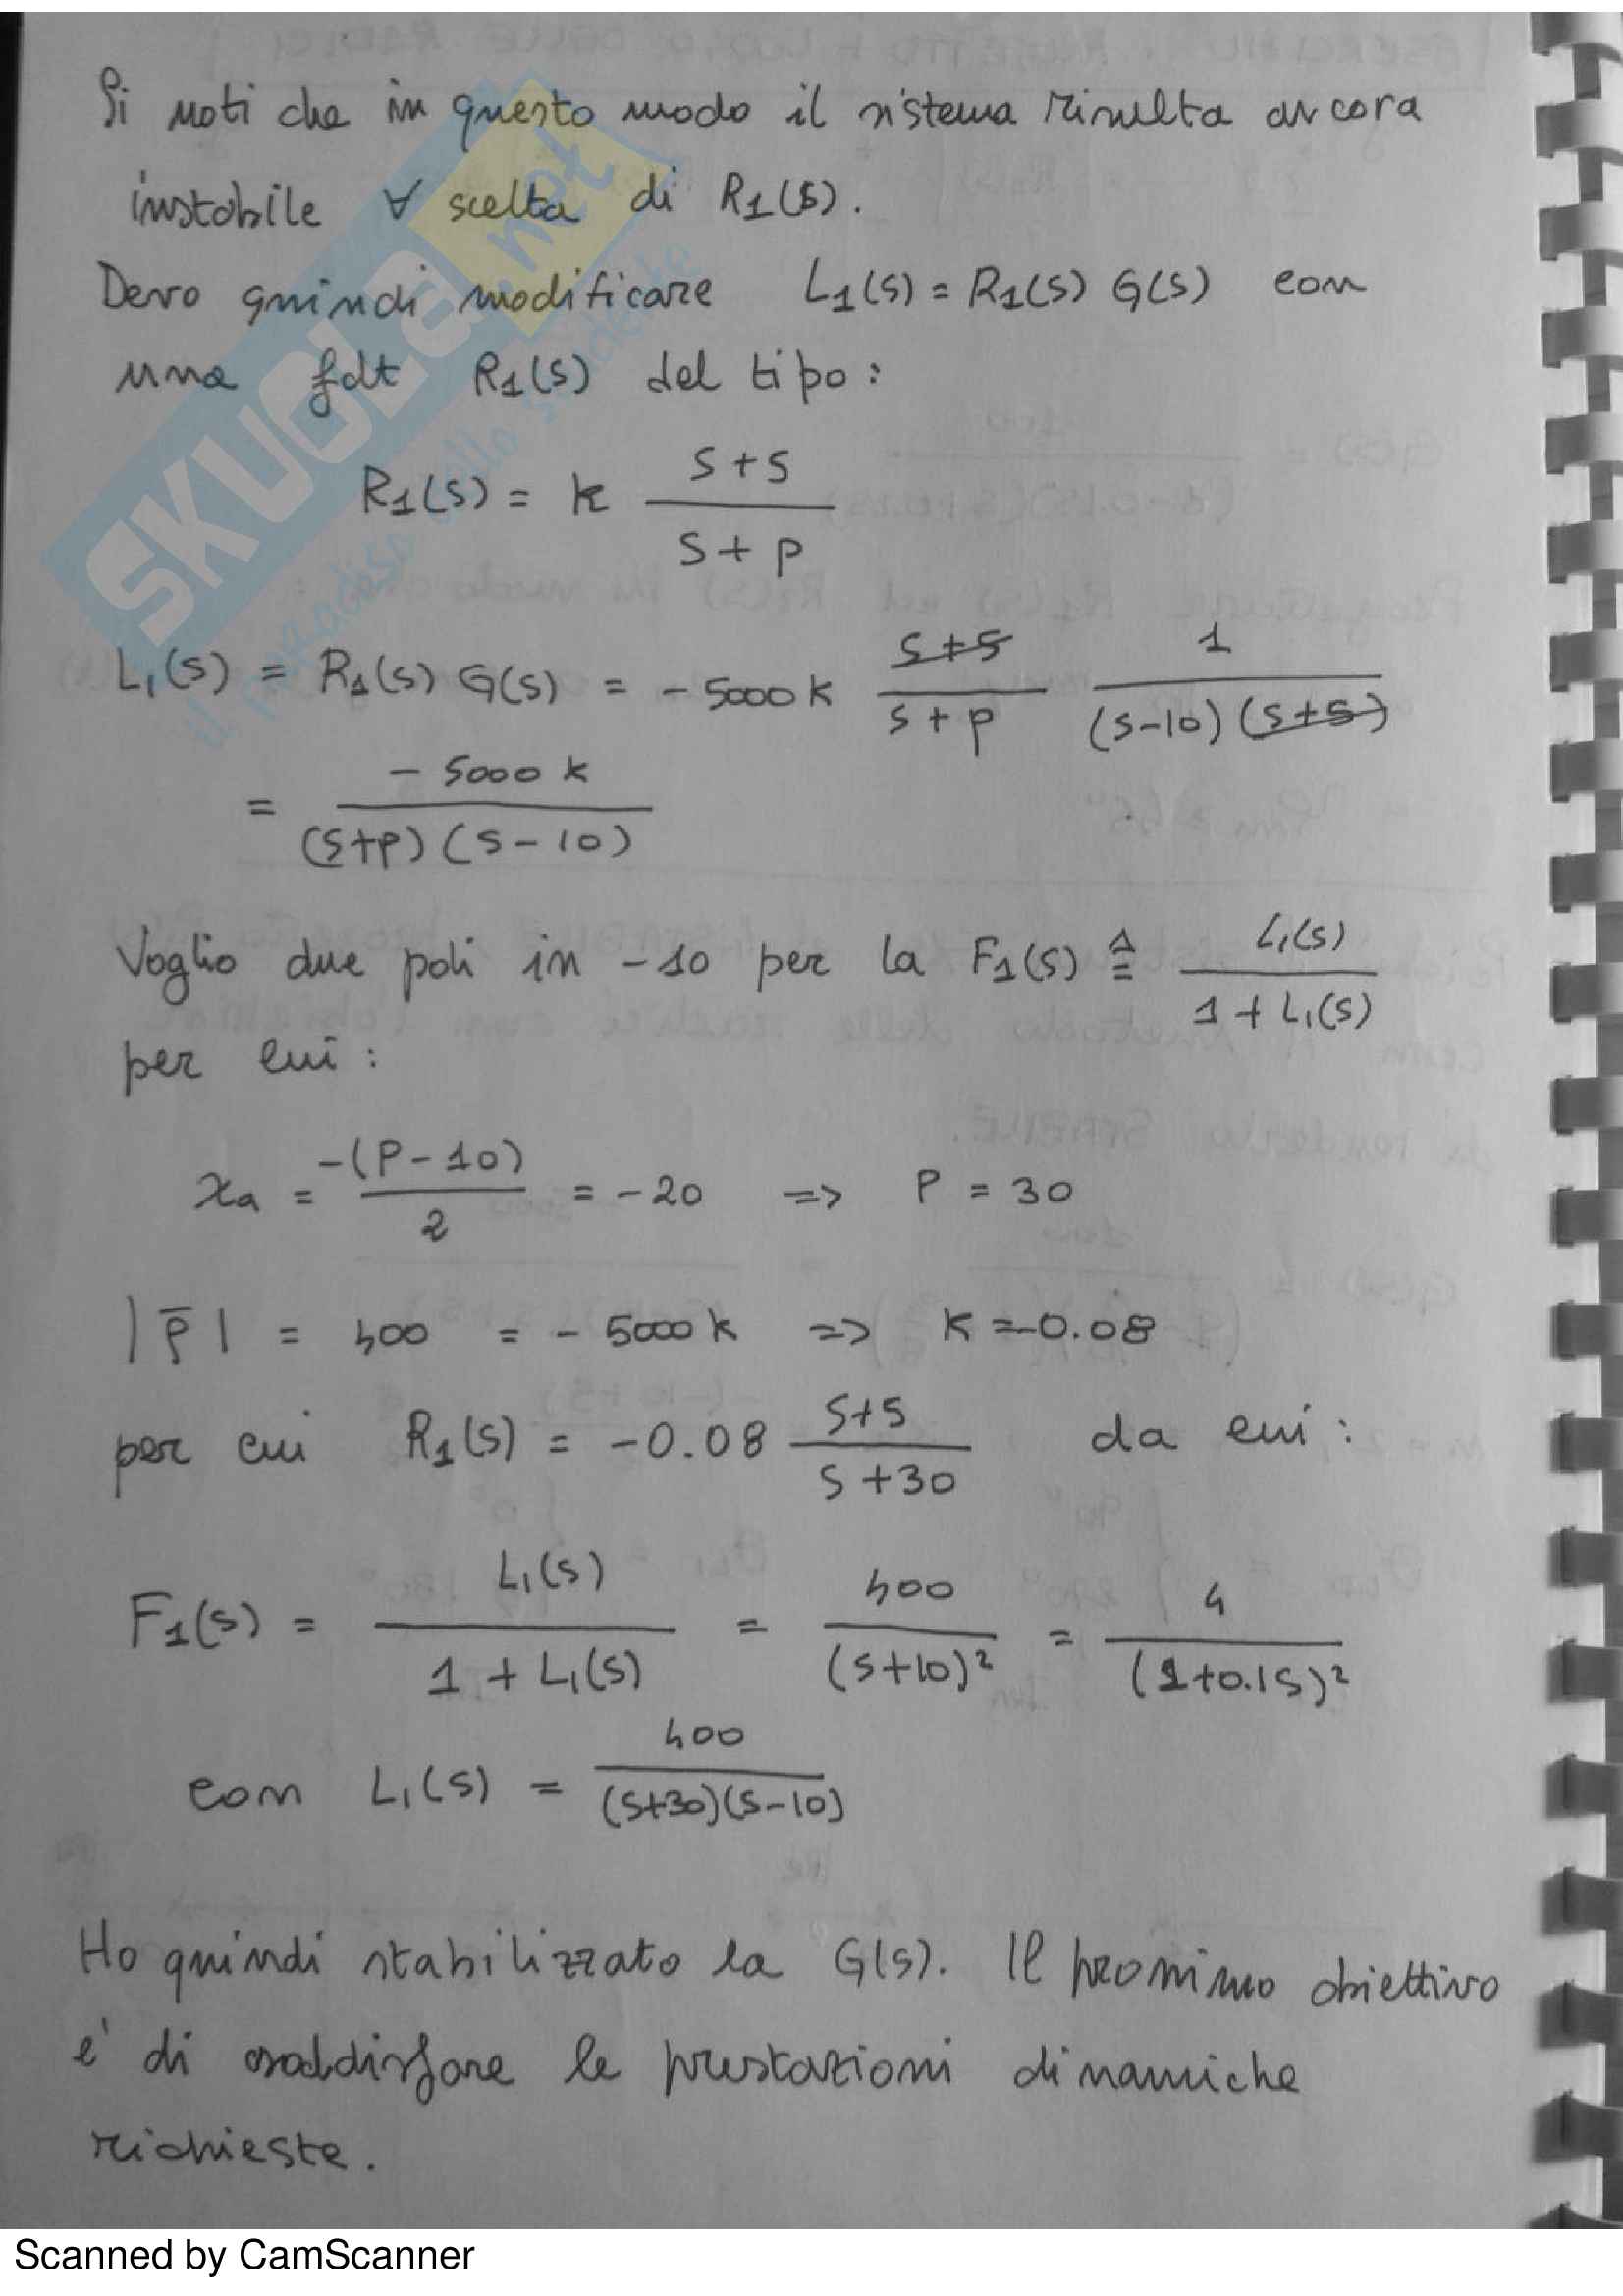 Si noti che in questo modo il sistema risulta ancora
instabile ∀ scelta di R1(s).
Devo quindi modificare L1(s) = R1(s) G(s) con
una fdt R1(s) del tipo:
R1(s) = k (s+5)/(s+p)
L1(s) = R1(s) G(s) = -5000k (s+5)/(s+p) 1/((s-10)(s+5))
= -5000 k/((s+p)(s-10))
Voglio due poli in -10 per la F1(s) ≜ L1(s)/(1+L1(s))
per cui:
xa = -(P-10)/2 = -20 => P = 30
|ρ̄| = 400 = - 5000k => K = -0.08
per cui R1(s) = -0.08 (s+5)/(s+30) da cui:
F1(s) = L1(s)/(1+L1(s)) = 400/(s+10)² = 4/(1+0.1s)²
con L1(s) = 400/((s+30)(s-10))
Ho quindi stabilizzato la G(s). Il prossimo obiettivo
e' di soddisfare le prestazioni dinamiche
richieste.
SKUOLA.net
il paradiso dello studente
Scanned by CamScanner